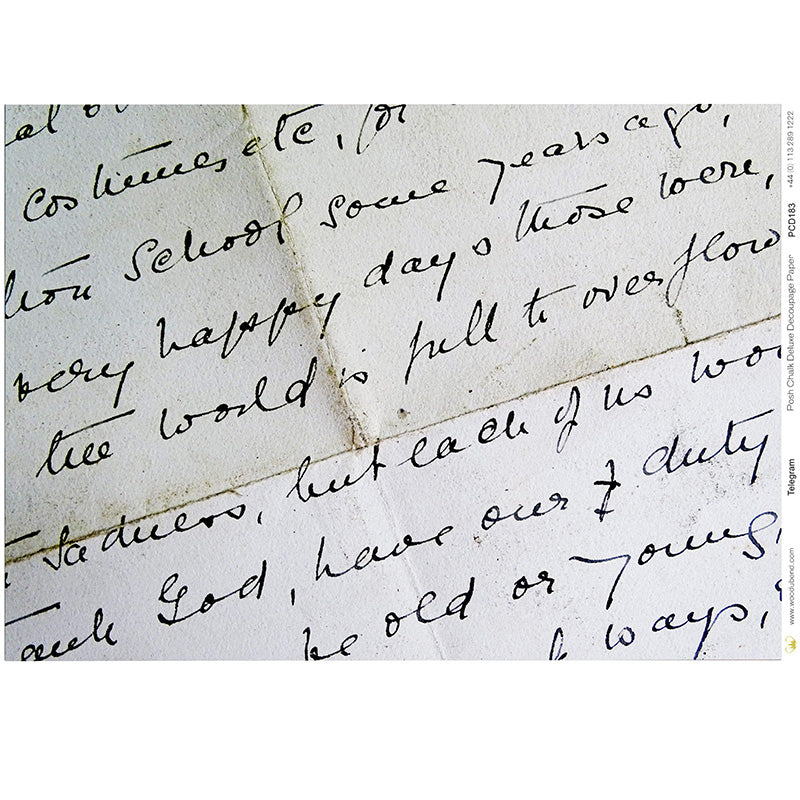 costumes etc, for
School some years ago,
very happy days those were,
the world is full to overflow
sadness, but each of us
God, have our duty
be old or young,
ways,
+44 (0) 113 289 1222
PCD183
Posh Chalk Deluxe Decoupage Paper
Telegram
www.woodubend.com